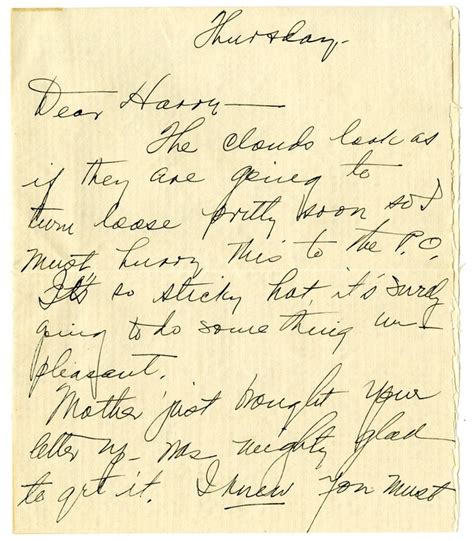 Thursday-
Dear Harry-
The clouds look as
if they are going to
turn loose pretty soon so I
must hurry this to the P.O.
It's so sticky hot, it's surely
going to do something un-
pleasant.
Mother just brought your
letter up- was mighty glad
to get it. I knew you must